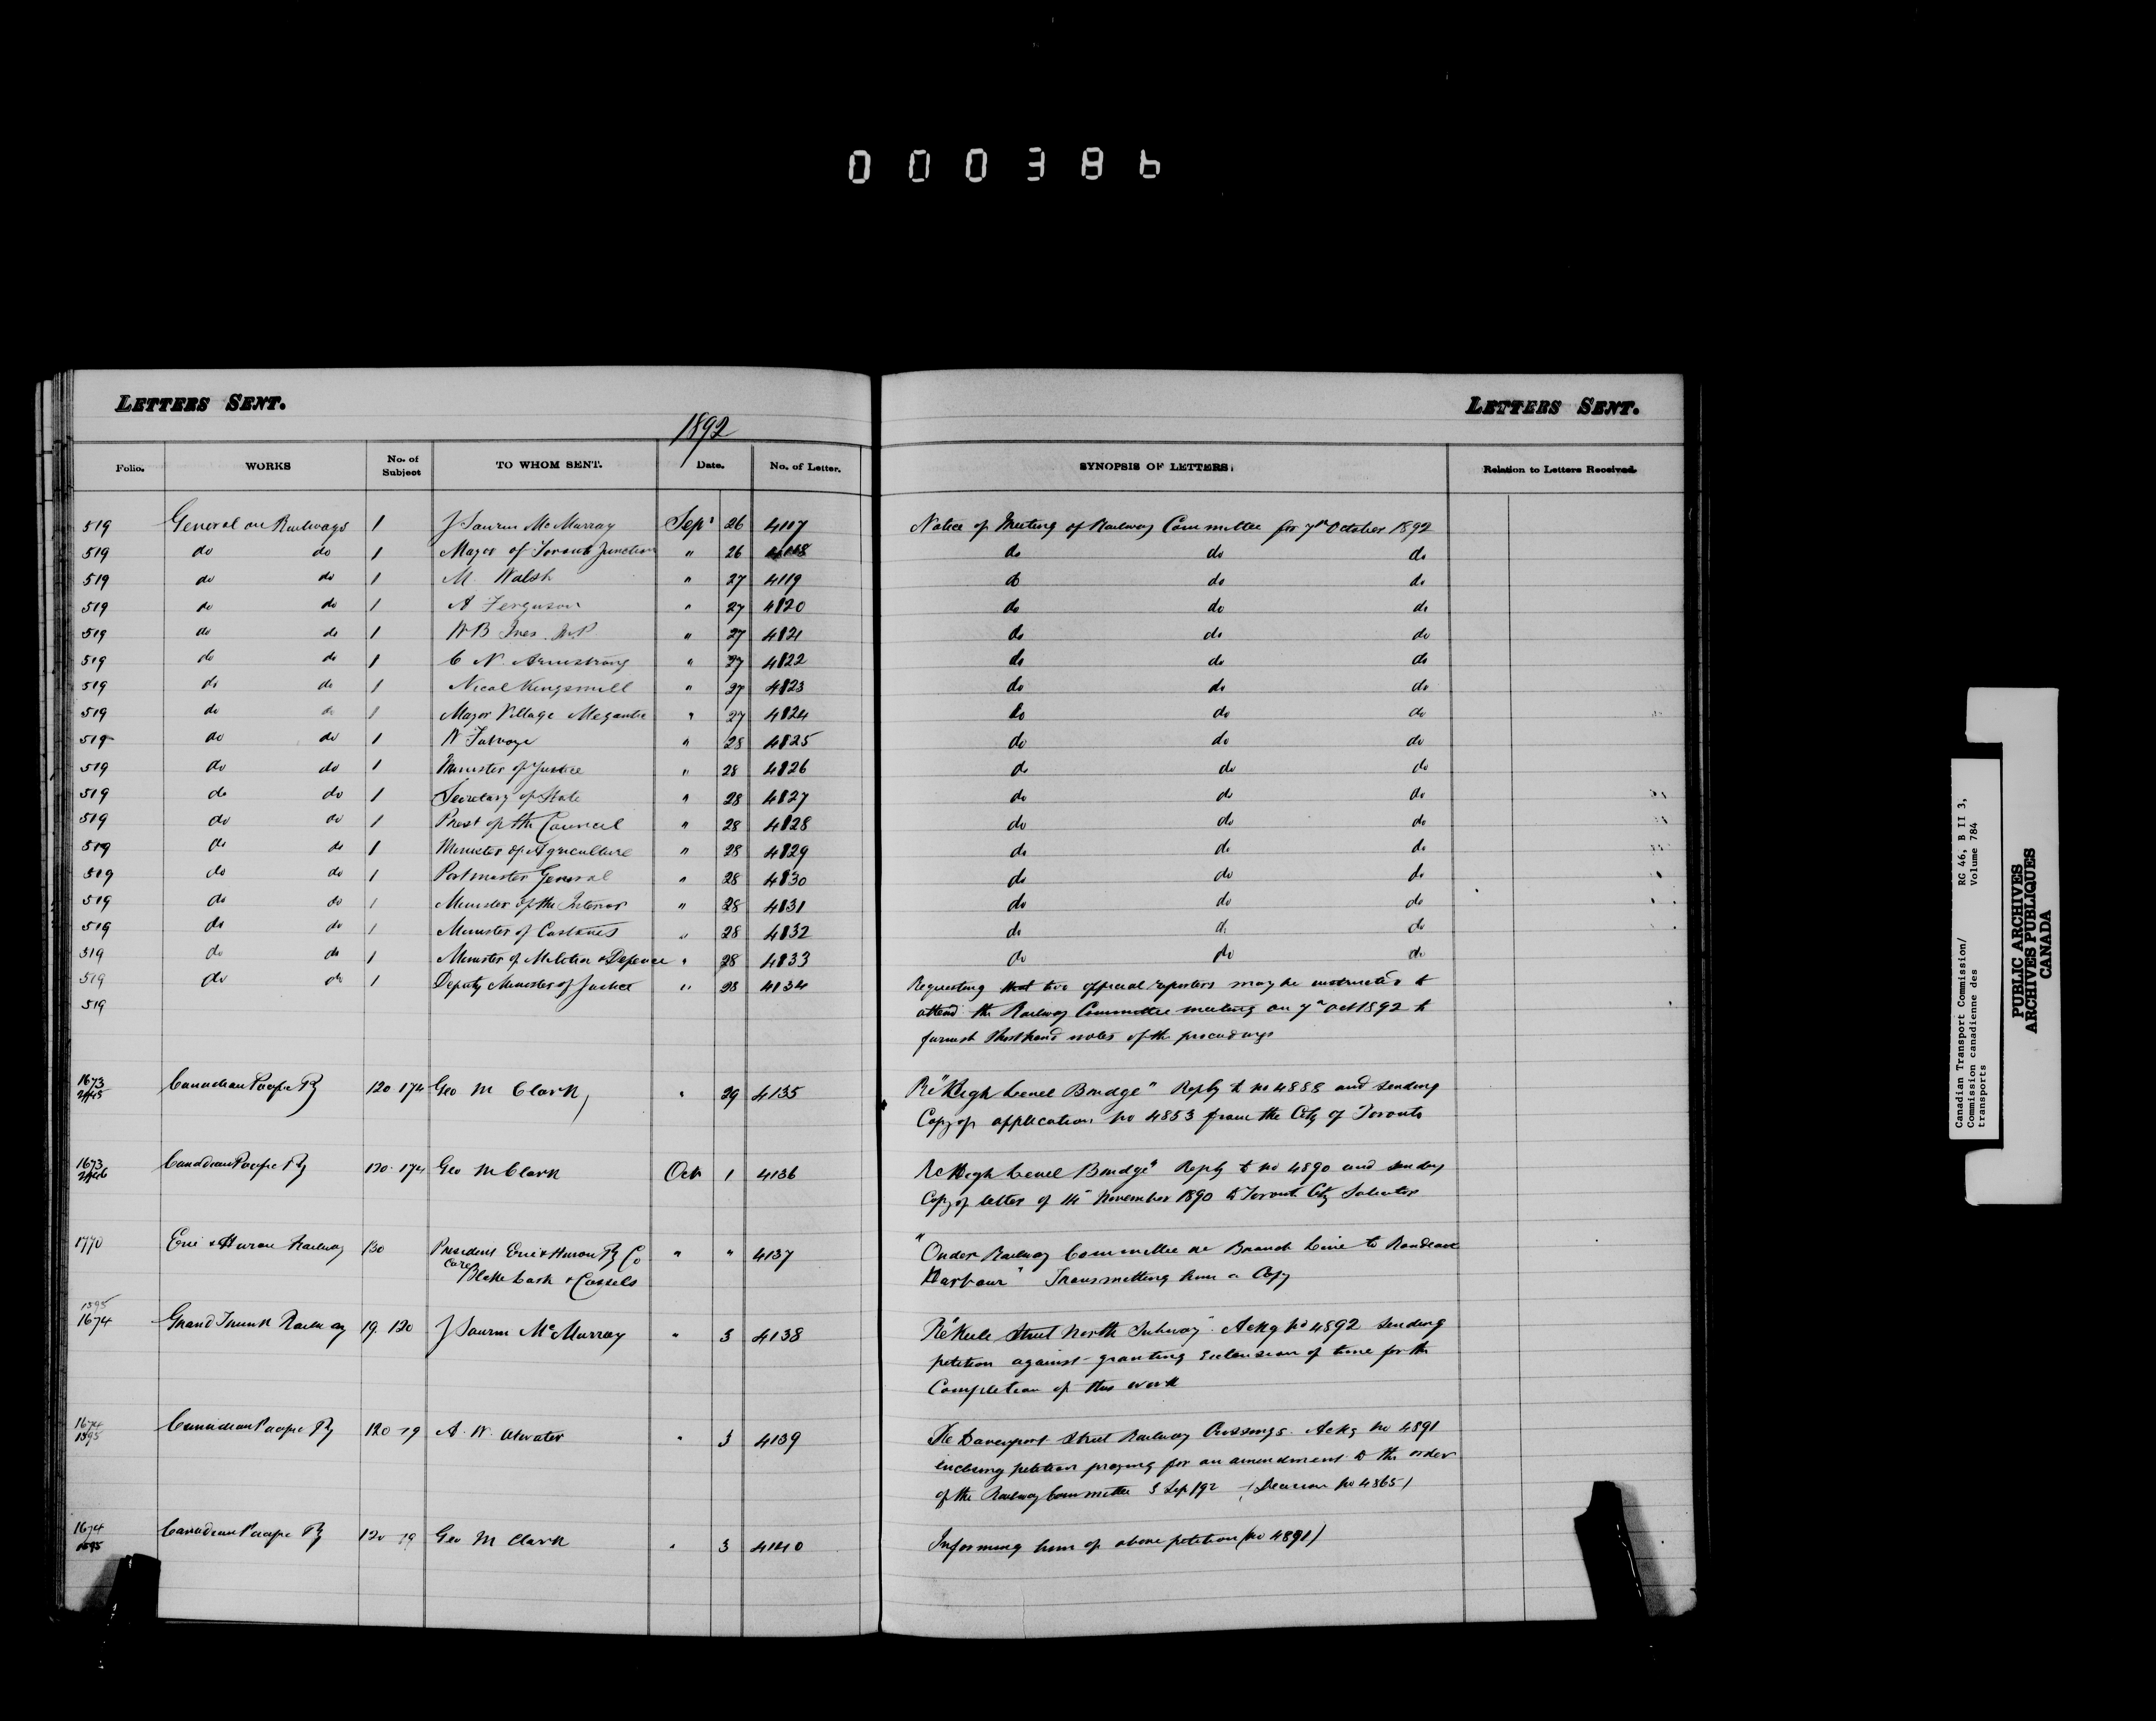 000386
LETTERS SENT.
LETTERS SENT.
1892
Folio. WORKS No. of Subject TO WHOM SENT. Date. No. of Letter. SYNOPSIS OF LETTERS. Relation to Letters Received.
519 General on Railways 1 J Saurin McMurray Sep' 26 4117 Notice of Meeting of Railway Committee for 7th October 1892
519 do do 1 Mayor of Toronto Junction " 26 4118 do do do
519 do do 1 M. Walsh " 27 4119 do do do
519 do do 1 A Ferguson " 27 4120 do do do
519 do do 1 W B Ives M.P " 27 4121 do do do
519 do do 1 C N. Armstrong " 27 4122 do do do
519 do do 1 Nicol Kingsmill " 27 4123 do do do
519 do do 1 Mayor Village Megantic " 27 4124 do do do
519 do do 1 W " 28 4125 do do do
519 do do 1 Minister of Justice " 28 4126 do do do
519 do do 1 Secretary of State " 28 4127 do do do
519 do do 1 Prest of the Council " 28 4128 do do do
519 do do 1 Minister of Agriculture " 28 4129 do do do
519 do do 1 Postmaster General " 28 4130 do do do
519 do do 1 Minister of the Interior " 28 4131 do do do
519 do do 1 Minister of Customs " 28 4132 do do do
519 do do 1 Minister of Militia & Defence " 28 4133 do do do
519 do do 1 Deputy Minister of Justice " 28 4134 Requesting that two official reporters may be instructed to
519 attend the Railway Committee meeting on 7th Oct 1892 to
furnish Shorthand notes of the proceedings
1673 Canadian Pacific Ry 120 174 Geo M Clark " 29 4135 Re "High Level Bridge" Reply to no 4888 and sending
Copy of application no 4853 from the City of Toronto
1673 Canadian Pacific Ry 120. 174 Geo M Clark Oct 1 4136 Re High Level Bridge" Reply to no 4890 and sending
Copy of letter of 14th November 1890 to Toronto City Solicitor
1770 Erie & Huron Railway 130 President Erie & Huron Ry Co " " 4137 "Order Railway Committee re Branch Line to Rondeau
care Blake Lash & Cassels Harbour" Transmitting him a Copy
1895
1674 Grand Trunk Railway 19. 120 J Saurin McMurray " 3 4138 Re "Keele Street North Subway". Ackg no 4892 sending
petition against granting extension of time for the
Completion of this work
1674
1895 Canadian Pacific Ry 120 - 19 A. W. Atwater " 3 4139 Re Davenport Street Railway Crossings. Ackg no 4891
enclosing petition praying for an amendment to the order
of the Railway Committee 3 Sep/92 (Decision no 4865)
1674
1895 Canadian Pacific Ry 120 19 Geo M Clark " 3 4140 Informing him of above petition (no 4891)
Canadian Transport Commission/ RG 46, B II 3,
Commission canadienne des Volume 784
transports
PUBLIC ARCHIVES
ARCHIVES PUBLIQUES
CANADA